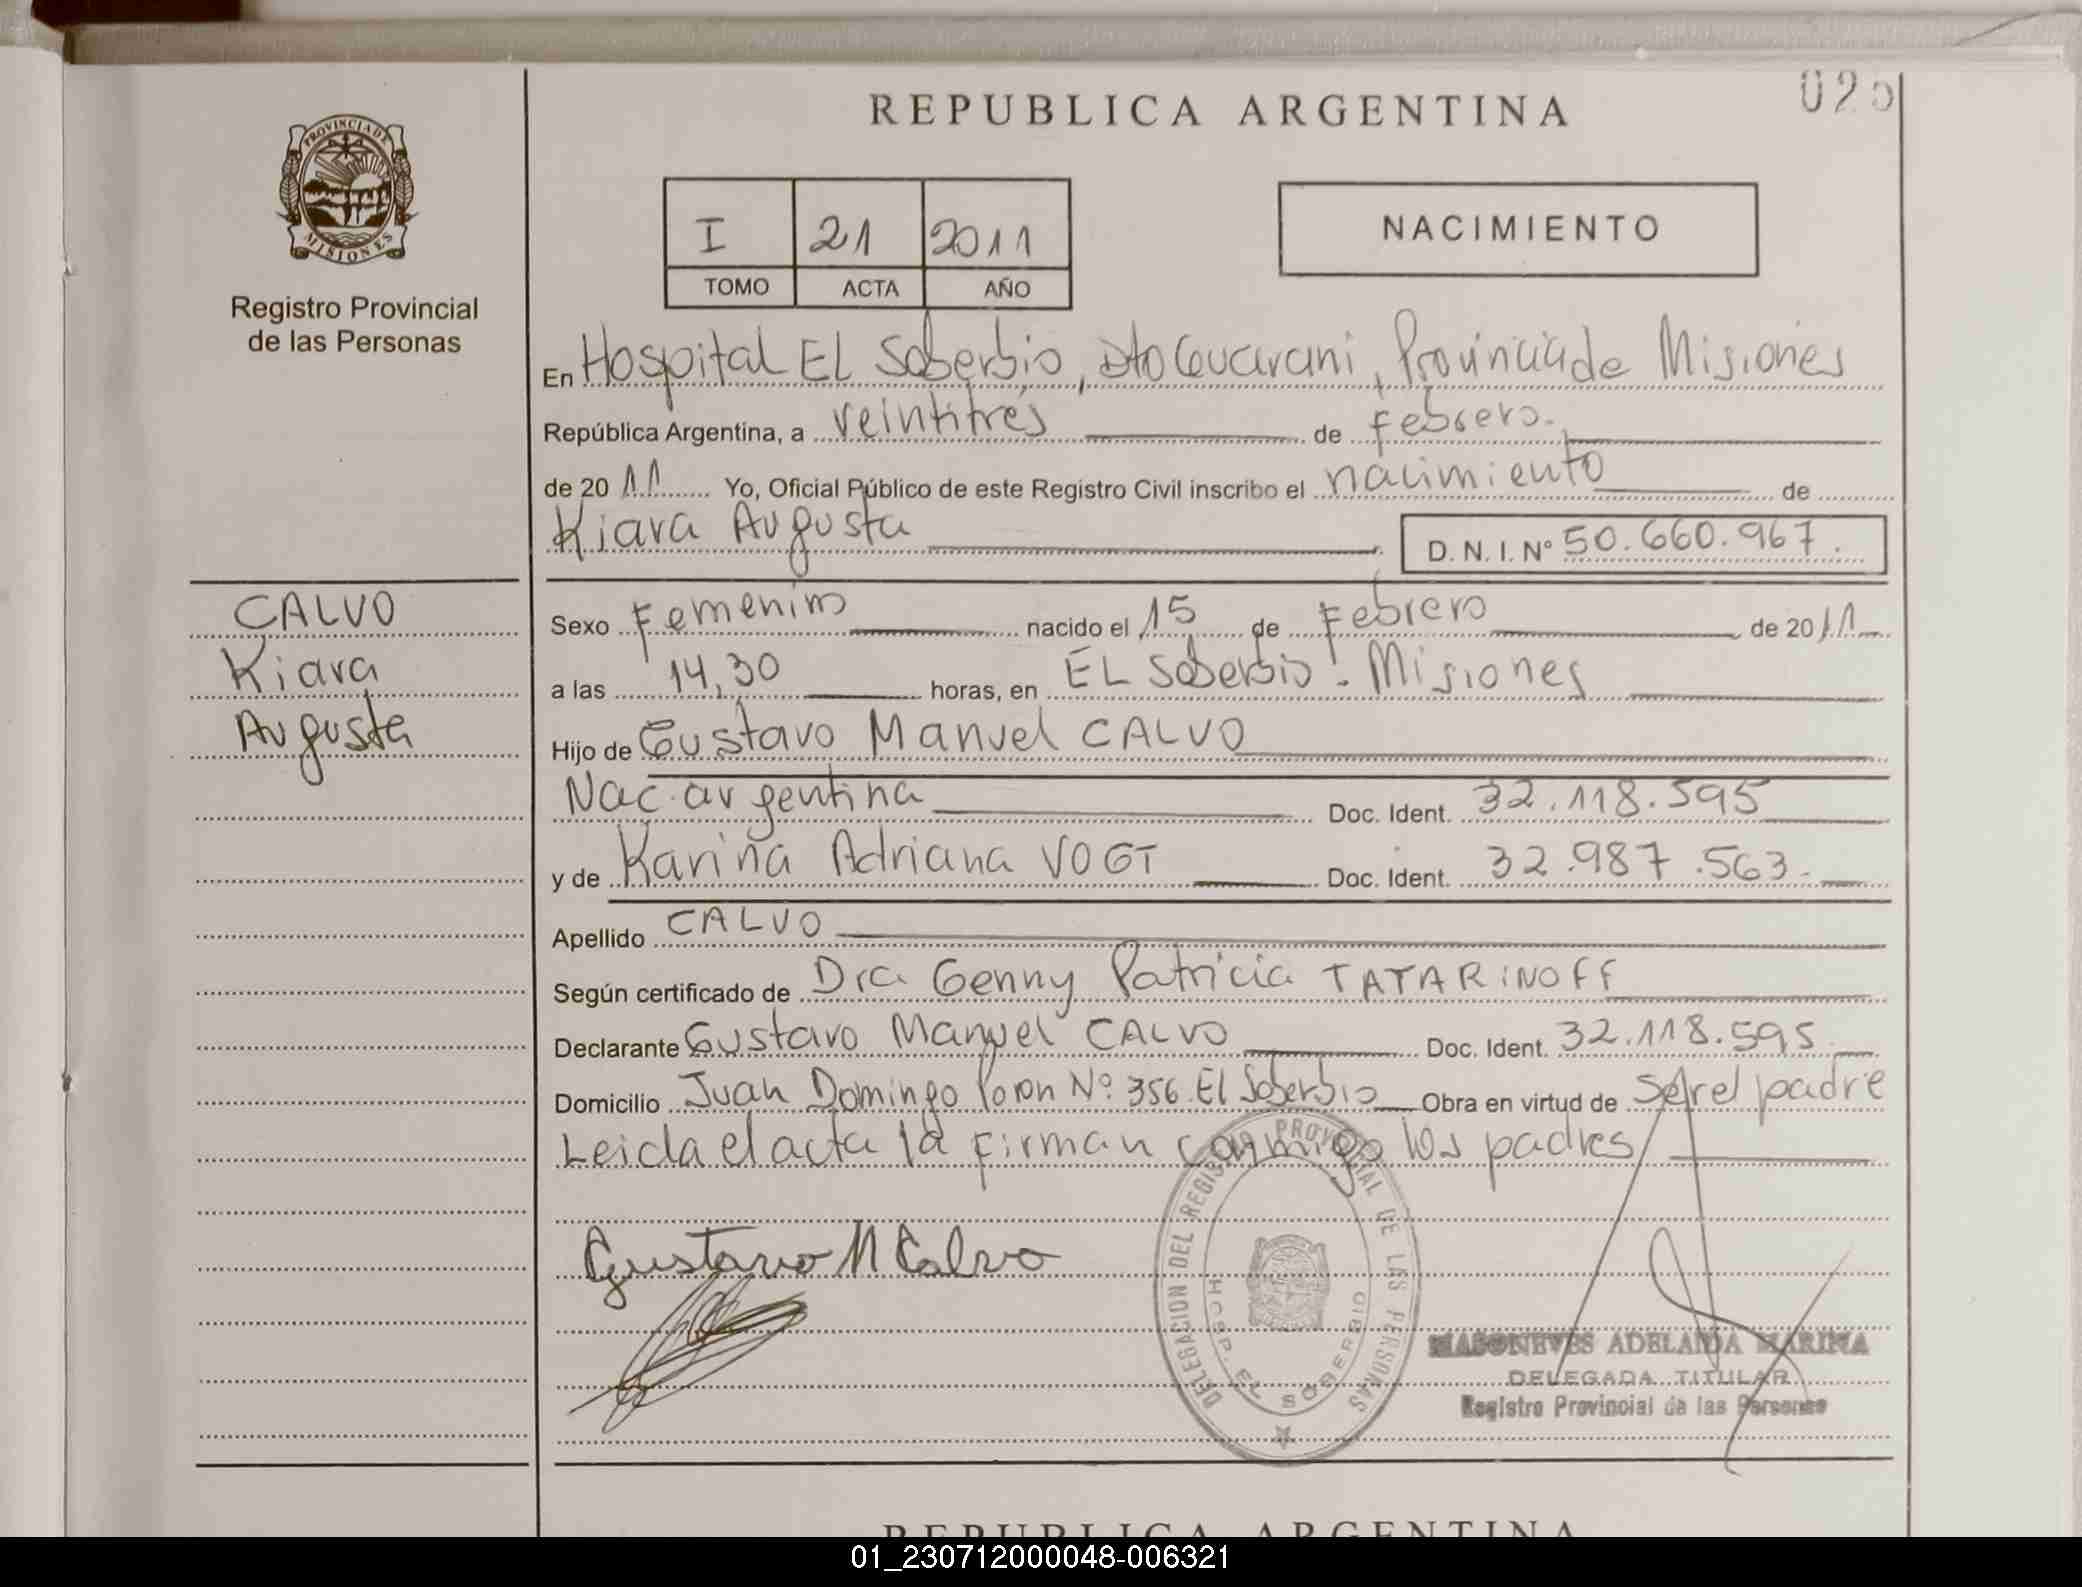 REPUBLICA ARGENTINA
025
PROVINCIA DE
MISIONES
Registro Provincial
de las Personas
I 21 2011
TOMO ACTA AÑO
NACIMIENTO
En Hospital EL Soberbio, Dto Guarani, Provincia de Misiones
República Argentina, a veintitrés de Febrero.
de 2011 Yo, Oficial Público de este Registro Civil inscribo el nacimiento de
Kiara Augusta D. N. I. Nº 50.660.967.
CALVO
Kiara
Augusta
Sexo Femenino nacido el 15 de Febrero de 2011
a las 14,30 horas, en EL Soberbio - Misiones
Hijo de Gustavo Manuel CALVO
Nac. argentina Doc. Ident. 32.118.595
y de Karina Adriana VOGT Doc. Ident. 32.987.563.
Apellido CALVO
Según certificado de Dra Genny Patricia TATARINOFF
Declarante Gustavo Manuel CALVO Doc. Ident. 32.118.595
Domicilio Juan Domingo Peron Nº 356 El Soberbio Obra en virtud de ser el padre
Leida el acta la firman conmigo los padres
Gustavo M Calvo
DELEGACION DEL REGISTRO PROVINCIAL DE LAS PERSONAS
HOSP. EL SOBERBIO
ADELAIDA MARINA
DELEGADA TITULAR
Registro Provincial de las Personas
REPUBLICA ARGENTINA
01_230712000048-006321